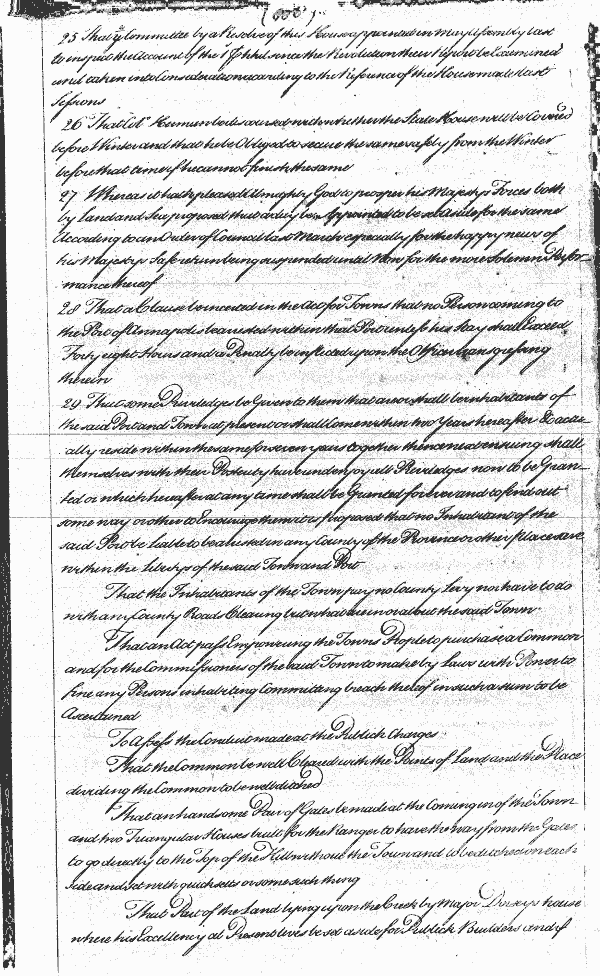 25 That ye Committee by a Resolve of this House appointed in May Assembly last
to inspect the Account of the since the Revolution their Report be Examined
and taken into Consideration according to the Reference of the House made last
Sessions
26 That Coll Herman be discoursed with whether the State House will be Covered
before Winter and that he be Obliged to secure the same safely from the Winter
before that time if he cannot finish the same
27 Whereas it hath pleased Almighty God to prosper his Majestys Forces both
by land and Sea proposed that a day be Appointed to be set aside for the same
According to an Order of Council last March especially for the happy news of
his Majestys Safe return being suspended until Now for the more Solemn Perfor-
mance thereof
28 That a Clause be inserted in the Act for Towns that no Person coming to
the Port of Annapolis be arrested within that Port unless his Stay shall Exceed
Forty eight Hours and a Penalty be inflicted upon the Officer transgressing
therein
29 That some Priviledges be Given to them that are or shall be inhabitants of
the said Port and Town at present or shall Come within two Years hereafter & actu-
ally reside within the same for seven years together thence next ensuing shall
themselves with their Posterity have and enjoy all Priviledges now to be Gran-
ted or which hereafter at any time shall be Granted for ever and to find out
some way or other to Encourage them it is proposed that no Inhabitant of the
said Port be Liable to be arrested in any County of the Province or other place save
within the Libertys of the said Town and Port
That the Inhabitants of the Town pay no County Levy nor have to do
with any County Roads Clearing but what are in or about the said Town
That an Act pass Empowring the Towns People to purchase a Common
and for the Commissioners of the said Town to make by Laws with Power to
fine any Persons inhabiting Committing breach thereof in such a sum to be
Ascertained
To Assess the Conduit made at the Publick Charges
That the Common be well Cleared with the Points of Land and the Place
dividing the Common to be well ditched
That an handsome Pair of Gates be made at the Coming in of the Town
and two Triangular Houses built for the Ranger to have the way from the Gates
to go directly to the Top of the Hill without the Town and to be ditched on each
side and set with quicksetts or some such thing
That Part of the Land lying upon the Creek by Major Dorseys house
where his Excellency at Present lives be set aside for Publick Builders and if